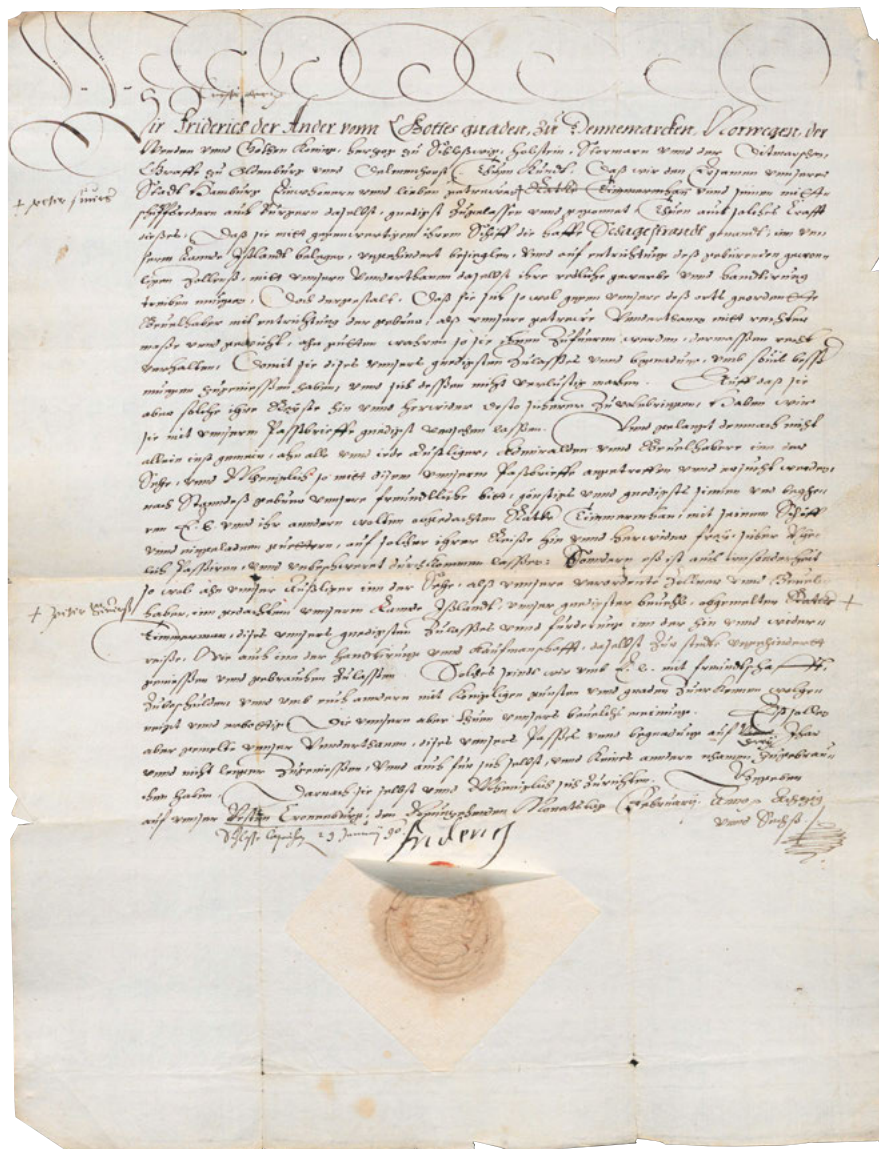 Wir Friderich der Ander vonn Gottes gnaden, zu Dennemarcken, Norwegen, der
Wenden vnnd Gotten König, Hertzog zu Schleßwig, Holstein, Stormarn vnnd der Ditmarschen,
Graffe zu Oldenburg vnnd Delmenhorst, Thun kundt, Daß wir den Ersamen vnserer
Stadt Hamburg Einwhonern vnnd lieben getrewen Ratke Timmerman vnnd seinen mitt
+ peter siuers
schiffsredern auch Bürgern daselbst, gnedigst zugelassen vnnd gegonnet, Thuen auch solches krafft
dieses, Daß sie mitt gegenwertigem ihrem Schiff die haffe Schagestrandt genandt, inn vn-
serm Lande Ißlandt belegen, vngehindert besieglen, vnnd auf entrichtung deß gebürenden gewon-
lichen Zollens, mitt vnsern Vnderthanen daselbst ihre redliche gewerbe vnnd handtirung
treiben mugen, Doch dergestalt, Daß sie sich so wol gegen vnsere deß orts
Beuelhaber mit entrichtung der gebüer, alß vnsere getrewe Vnderthanen mitt rechter
maße vnnd gewicht, ahn gutten wahren so sie ihnen zufueren werden, dermassen recht
verhalten, Damit sie dises vnsers gnedigsten zulasses vnnd begnadung,
mugen zugeniessen haben, vnnd sich dessen nicht verlustig machen. Auff daß sie
aber solche ihre Reyse hin vnnd herwider desto sicherer zuuolnbringen, Haben wir
sie mit vnserm Paßbrieffe gnedigst versehen lassen. Vnnd gelangt demnach nicht
allein inß gemein, ahn alle vnnd iede Außliger, Admiralden vnnd Beuelhabere inn der
Sehe, vnnd Menniglich so mitt disem vnserm Paßbrieffe angetroffen vnnd ersucht werden,
nach Standeß gebüer vnsere freundtliche bitt, günstigs vnnd gnedigsts sinnen vnd begeh-
ren E. L. vnnd ihr andern wolten obgedachten Ratke Timmerman, mit seinem Schiff
vnnd eingeladenen güettern, auf solcher ihrer Reise hin vnnd herwider frey, sicher
lich Passiren, vnnd vnbeschweret durchkommen lassen: Sondern eß ist auch insonderheit
so wol ahn vnser Außliger inn der Sehe, alß vnsere verordente Zollner vnnd Beuel-
haber, inn gedachten vnserem Lande Ißlandt, vnser gnedigster beuehl, obgemelten Ratke +
+ peter siuerß
Timmerman, dises vnsers gnedigsten zulasses vnnd fürderung inn der hin vnnd wider-
reise, Wie auch inn der handtirung vnnd Kaufmanschafft, daselbst zur stede vngehindertt
geniessen vnnd gebrauchen zulassen. Solches seindt wir vmb E. L. mit freundtschafft,
zubeschulden, vnnd vmb euch andern mit Königlichen gunsten vnnd gnaden zuerkennen wolge-
neigt vnnd erbottig. Die vnsere aber thuen vnsers beuelchs meinunge. Eß sollen
aber gemelte vnser Vnderthanen, dises vnsers Paßes vnnd begnadung auf Jhar
vnnd nicht lenger zugeniessen, vnnd auch für sich selbst, vnnd keines andern nhamen, zugebrau-
chen haben. Darnach sie selbst vnnd Menniglich sich zurichten. Gegeben
auf vnser Vesten Cronenburg, den Monatstag February. Anno Achtzig
vnnd Sechß.
Schlosse 29 January 90.
Friderich